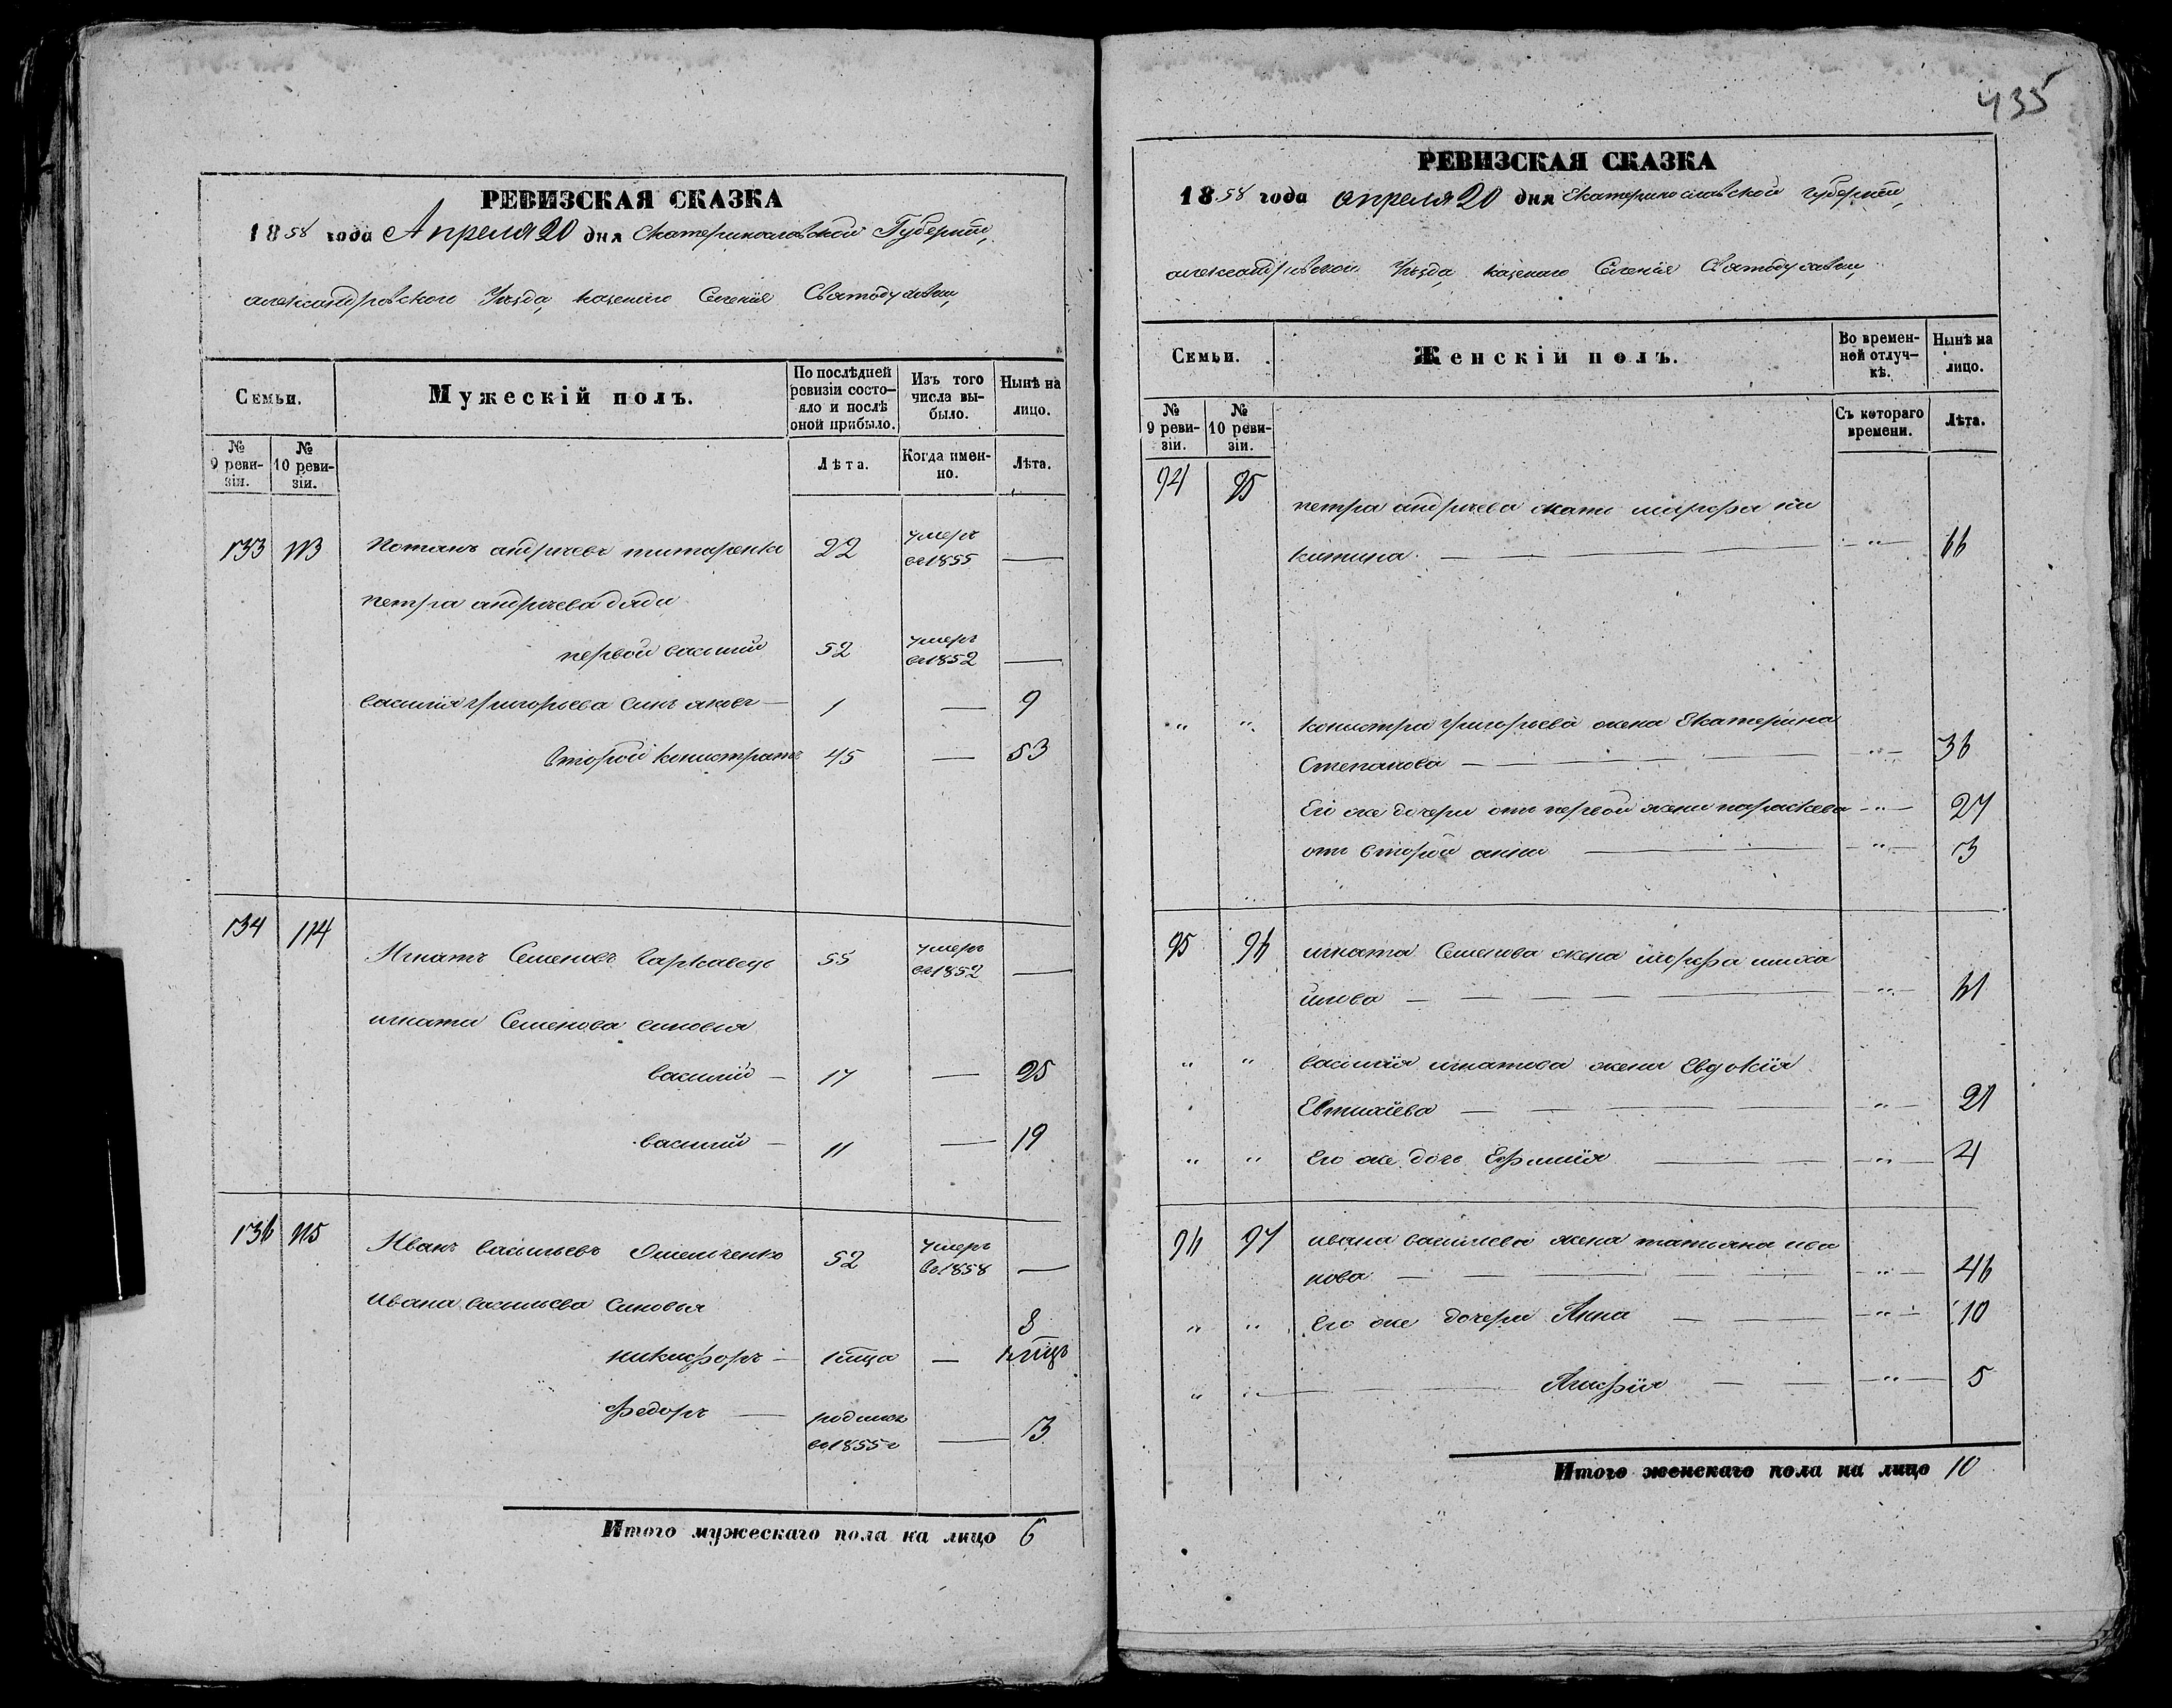 РЕВИЗСКАЯ СКАЗКА
1858 года Апреля 20 дня Екатеринославской Губерніи,
александровского Уѣзда, казеннаго Селенія Святодуховки,
Семьи.
Мужескій полъ.
По послѣдней ревизіи состо-
яло и послѣ
оной прибыло.
Изъ того
числа вы-
было.
Нынѣ на
лицо.
№
9 реви-
зіи.
№
10 реви-
зіи.
Лѣта.
Когда имен-
но.
Лѣта.
133 113 Потапъ андреевъ титаренко 22 умеръ
въ1855 —
петра андреева дяди
первой василий 52 умеръ
въ1852 —
василия григорьева синъ яковъ — 1 — 9
второй 45 — 53
134 114
Игнатъ Семеновъ 55 умеръ
въ1852 —
игната Семенова синовья
василий — 17 — 25
василий — 11 — 19
136 115 Иванъ васильевъ Омельченко 52 умеръ
въ1858 —
ивана васильева Синовья
никифоръ — — 8
федоръ — родился
въ1855г — 3
Итого мужескаго пола на лицо 6
435
РЕВИЗСКАЯ СКАЗКА
1858 года апреля 20 дня Екатеринославской губерніи,
александровского Уѣзда, казенаго Селенія Святодуховки,
Семьи.
Женскій полъ.
Во времен-
ной отлуч-
кѣ.
Нынѣ на
лицо.
№
9 реви-
зіи.
№
10 реви-
зіи.
Съ котораго
времени.
Лѣта.
94 95
петра андреева мати марфа ни
китина — „ — 66
„ „ григорьева жена Екатерина
Степанова — „ — 36
Его же дочери отъ первой жени параскева — „ — 27
отъ второй анна — „ — 3
95 96 игната Семенова жена марфа миха
йлова — „ — 61
„ „ василия игнатова жена Евдокія
— „ — 21
„ „ Его же дочь Ефимія — „ — 4
96 97 ивана васильева жена татьяна ива
нова — „ — 46
„ „ Его же дочери Анна — „ — 10
„ „ — Агафія — „ — 5
Итого женскаго пола на лицо 10